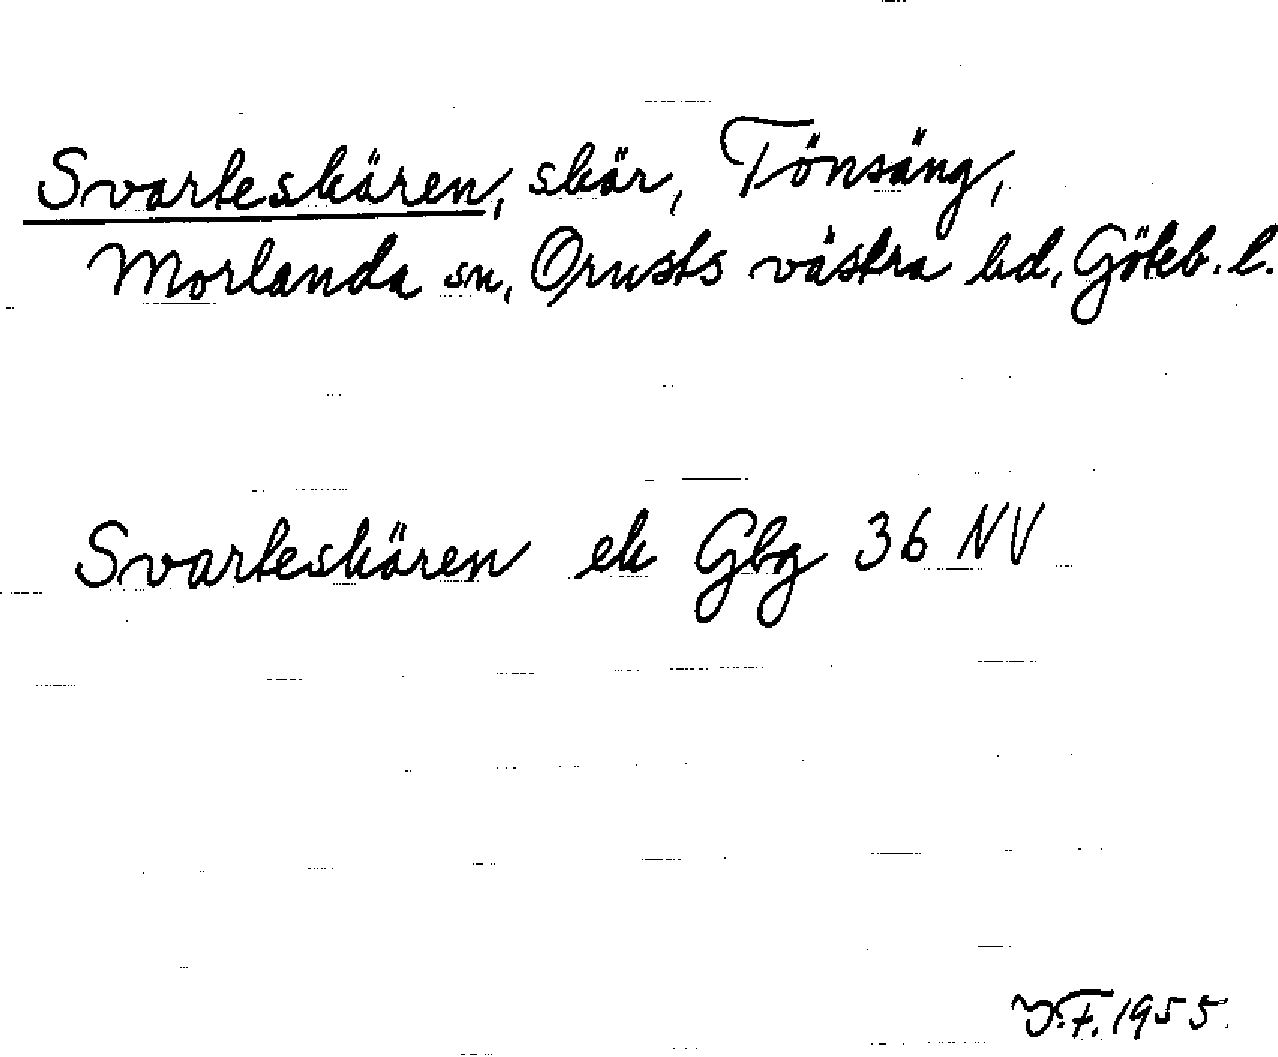 Svarteskären, skär, Tönsäng,
Morlanda sn, Orusts västra hd, Göteb. l.
Svarteskären ek Gbg 36 NV
J.F. 1955.